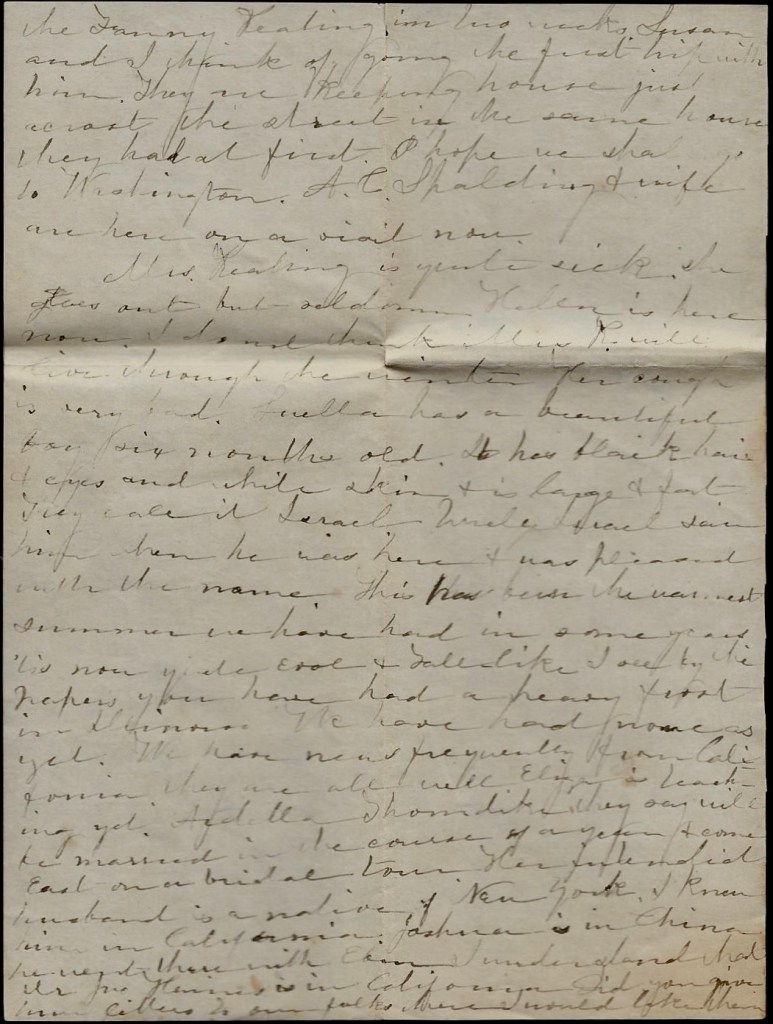 the Fanny Keating in two weeks. Susan
and I think of going the first trip with
him. They are keeping house just
acrost the street in the same house
they had at first. I hope we shal
to Washington. A. C. Spalding & wife
are here on a visit now.
Mrs. Keating is quite sick. She
goes out but seldom. Hellen is here
now. I do not think Mrs K. will
live through the winter Her cough
is very bad. Luella has a beautiful
boy six months old. It has black hair
& eyes and white skin & is large & fat
They call it Israel Israel saw
him when he was here & was pleased
with the name This has been the warmest
summer we have had in some years
'tis now quite cool & Fall like I see by the
papers you have had a heavy frost
in Illinois We have had none as
yet. We have news frequently from Cali
fornia they are all well Eliza is teach
ing yet. Thorndike they say will
be married in the course of a year & come
East on a bridal tour Her intended
husband is a native of New York. I knew
him in California. Joshua is in China
he went there with Eben I understand that
Mr Jos is in California Did you give
him letters to our folks there I would like them